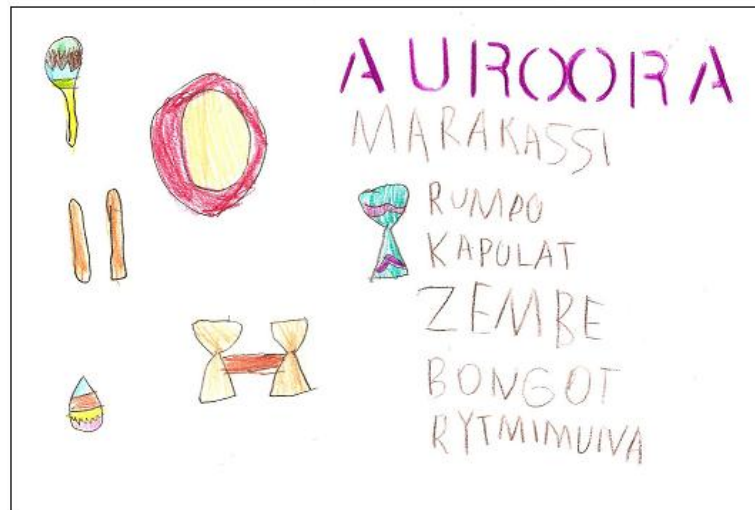 AUROORA
MARAKASSI
RUMPO
KAPULAT
ZEMBE
BONGOT
RYTMIMUNA